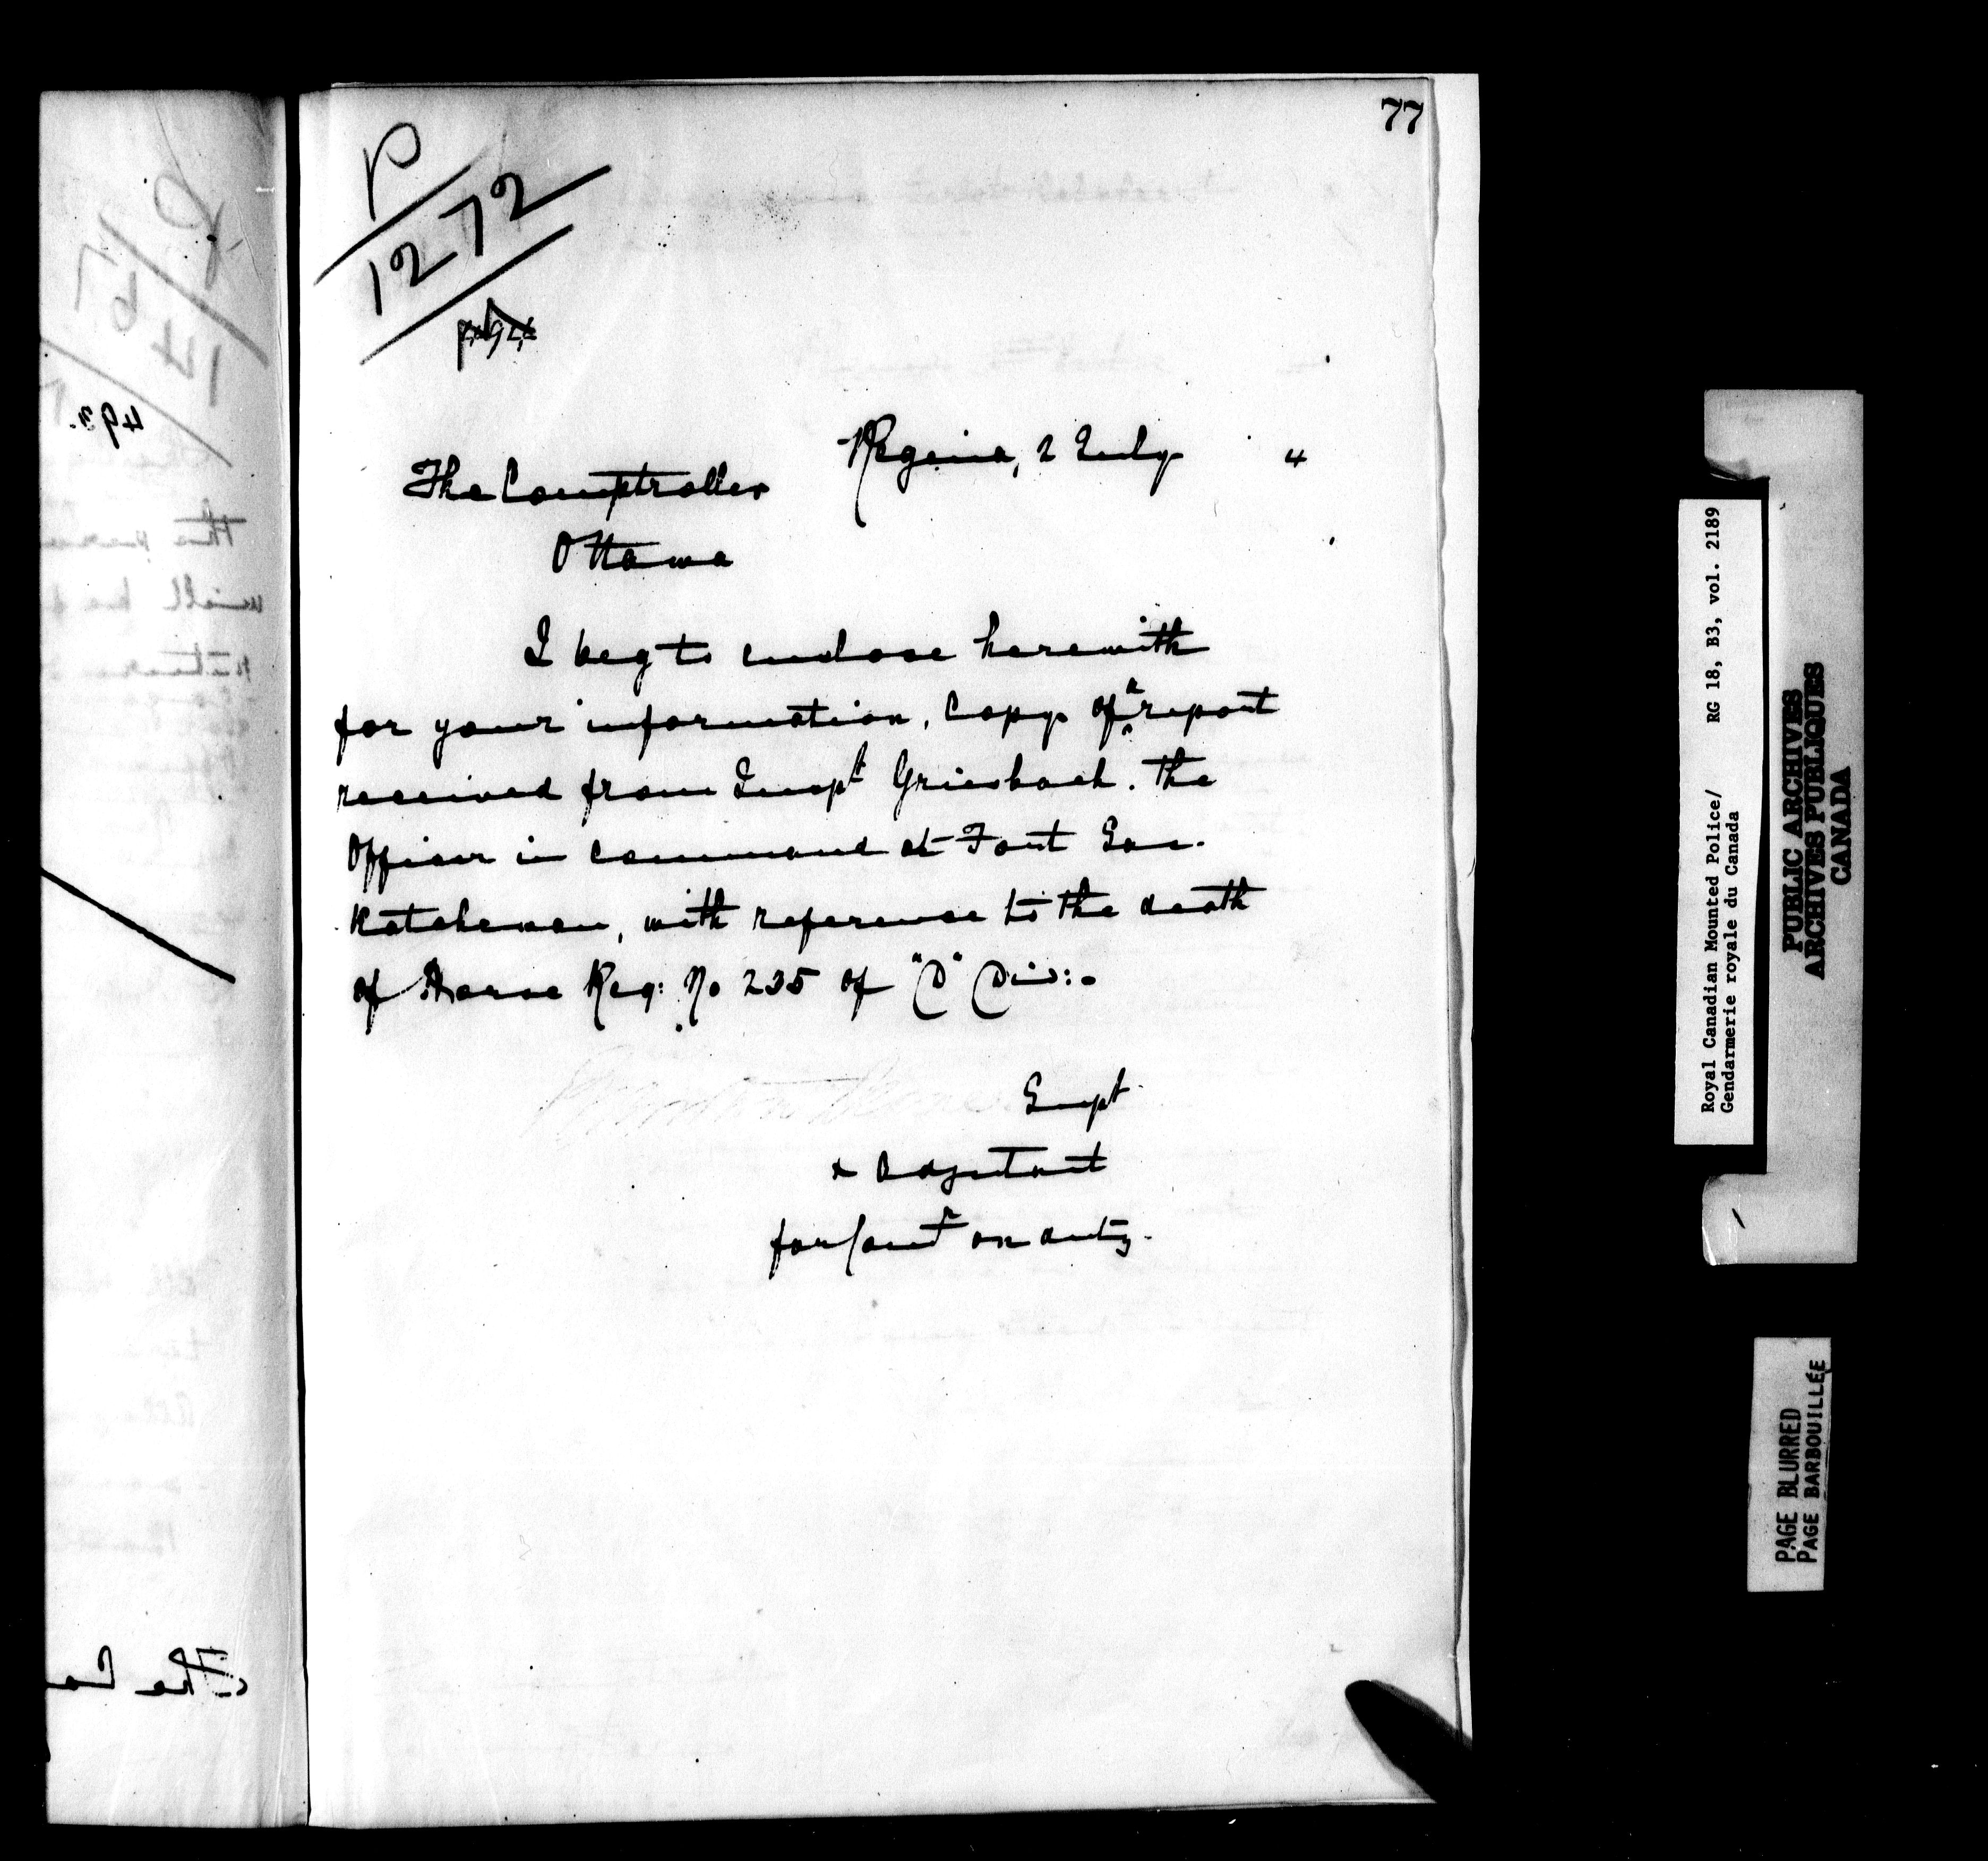 77
P
1272
Regina, 2 July 4
The Comptroller
Ottawa
I beg to enclose herewith
for your information, copy of a report
received from Insp^t Griesbach. the
Officer in command at Fort Sas-
katchewan, with reference to the death
of Horse Reg: No 235 of "D" Div:-
Supt
& Adjutant
for Com^r on duty.
493.
the
will be
The Co
Royal Canadian Mounted Police/ RG 18, B3, vol. 2189
Gendarmerie royale du Canada
PUBLIC ARCHIVES
ARCHIVES PUBLIQUES
CANADA
PAGE BLURRED
PAGE BARBOUILLÉE